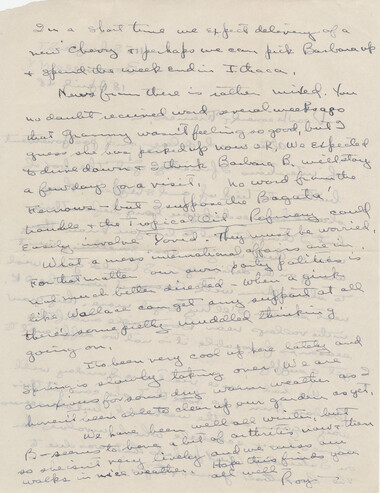 In a short time we expect delivery of a
new Chevy & perhaps we can pick Barbara up
& spend the week end in Ithaca.
News from there is rather mixed. You
no doubt received word several weeks ago
that Grammy wasn't feeling so good, but I
guess she has perked up now O.K. We expected
to drive down & I think Barbara B. will stay
a few days for a visit. no word from the
- but I suppose the Bagota'
trouble & the Tropical Oil Refinery could
easily involve They must be worried.
What a mess international affairs are in.
For that matter our own party politics is
not much better directed - when a gink
like Wallace can get any support at all
there's some pretty muddled thinking
going on.
It's been very cool up here lately and
Spring is slowly taking over. We are
anxious for some dry warm weather as I
haven't been able to clean up our garden as yet.
We have been well all winter but
B- seems to have a bit of arthritis now & then
so she isn't very lively and we miss our
walks in nice weather. Hope this finds you
all well.
Roy.